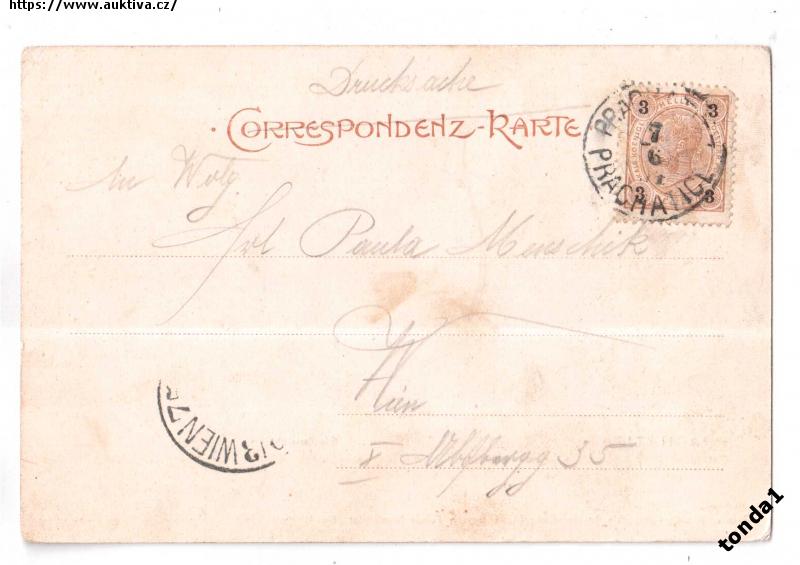 https://www.auktiva.cz/
Drucksache
CORRESPONDENZ-KARTE
3 3
3 3
PRACHATICE
7
6
An
Frl Paula Menschik
Wien
35
WIEN 7
tonda1